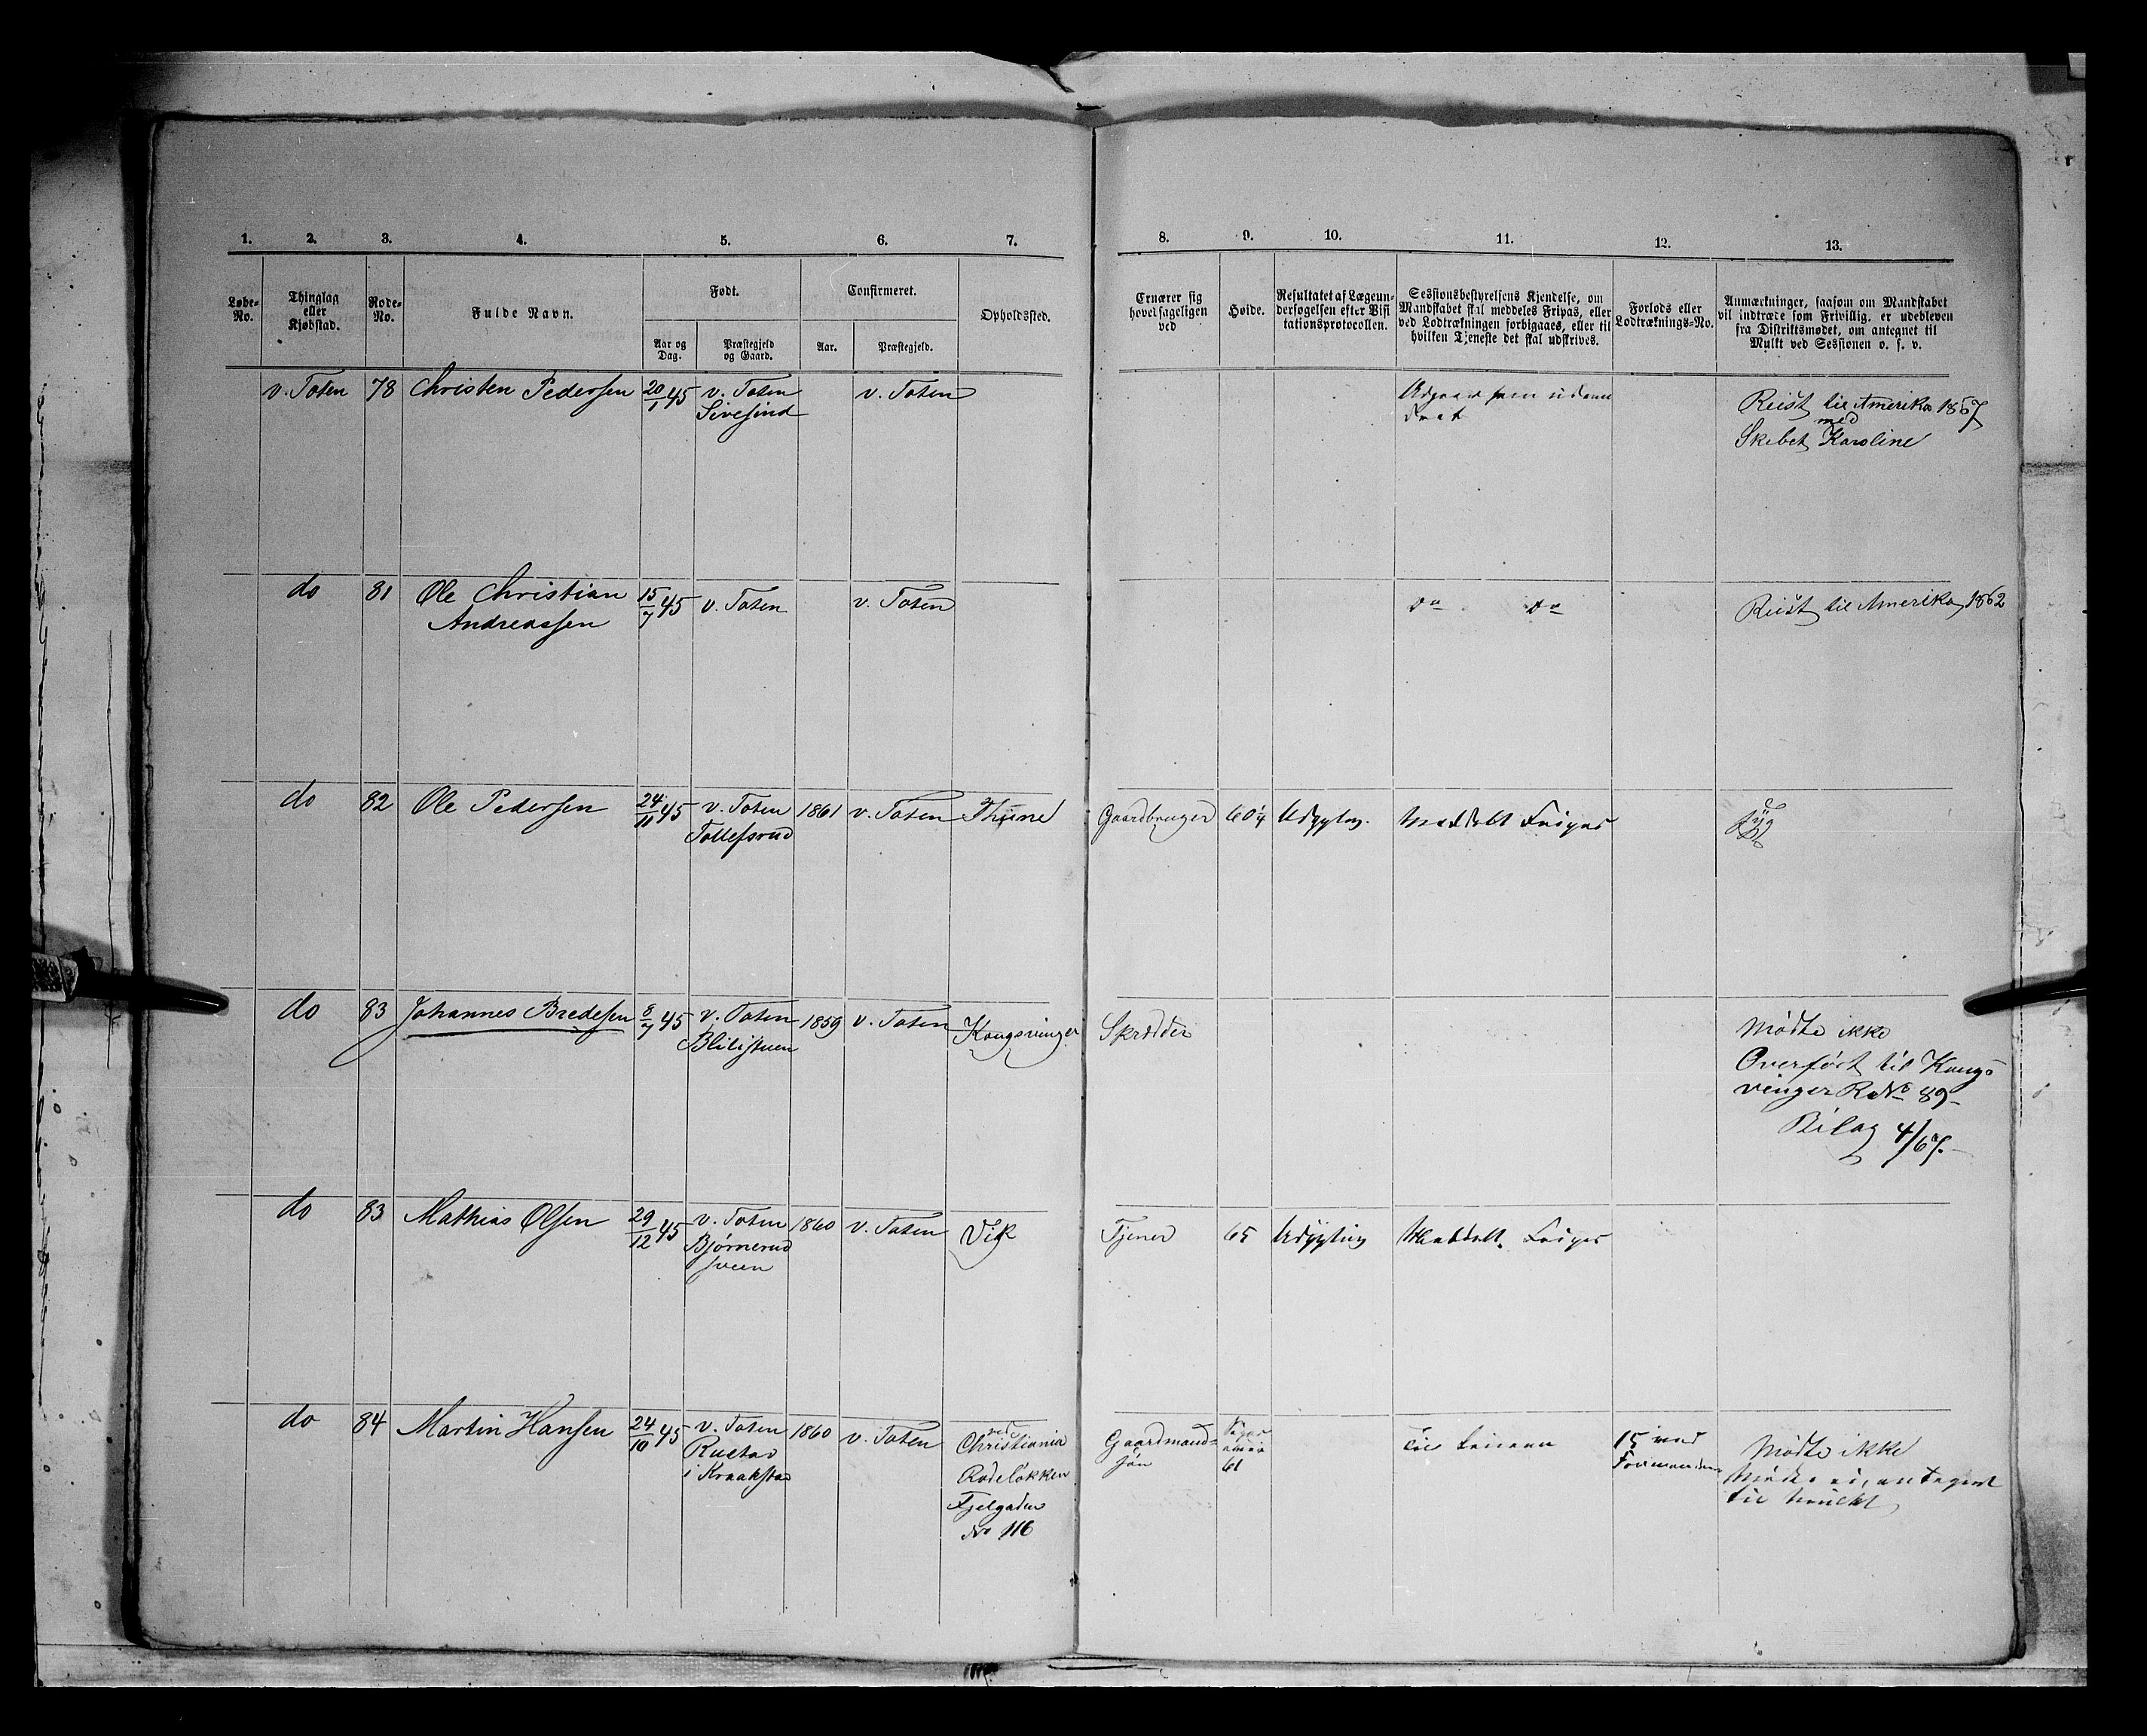 1. 2. 3. 4. 5. 6. 7. 8. 9. 10. 11. 12. 13.
Løbe-No.
Thinglag eller Kjøbstad.
Rode-No.
Fulde Navn.
Født.
Aar og Dag.
Præstegjeld og Gaard.
Confirmeret.
Aar.
Præstegjeld.
Opholdssted.
Ernærer sig hovedsageligen ved
Høide.
Resultatet af Lægeun-
dersøgelsen efter Visi
tationsprotocollen.
Sessionsbestyrelsens Kjendelse, om
Mandskabet skal meddeles Fripas, eller
ved Lodtrækningen forbigaaes, eller til
hvilken Tjeneste det skal udskrives.
Forlods eller
Lodtræknings-No.
Anmærkninger, saasom om Mandskabet
vil indtræde som Frivillig, er udebleven
fra Distriktsmødet, om antegnet til
Mulkt ved Sessionen o. s. v.
v. Toten 78 Christen Pedersen 20/1 45 v. Toten v. Toten
Sivesind
Udgaar som udvan
dret
Reist til Amerika 1867
med
Skibet Karoline
do 81 Ole Christian 15/7 45 v. Toten v. Toten
Andreassen
do do
Reist til Amerika 1862
do 82 Ole Pedersen 24/11 45 v. Toten 1861 v. Toten Thune
Tollefsrud
Gaardbruger 60¼ Udygtig. Meddelt Fripas
do 83 Johannes Bredesen 8/7 45 v. Toten 1859 v. Toten Kongsvinger
Blilistuen
Skrædder
Mødte ikke
Overført til Kongs
vinger R No 89
Bilag 4/67.
do 83 Mathias Olsen 29/12 45 v. Toten 1860 v. Toten Vik
Bjørnerud
sveen
Tjener 65 Udygtig Meddelt Fripas
do 84 Martin Hansen 24/10 45 v. Toten 1860 v. Toten
Rustad
i Kraakstad
ved
Christiania
Rodeløkken
Fjelgaden
No 116
Gaardmands
søn
61
Til Linien
15 ved
Formanden
Mødte ikke
Mødte ei, antegnet
til Mulkt